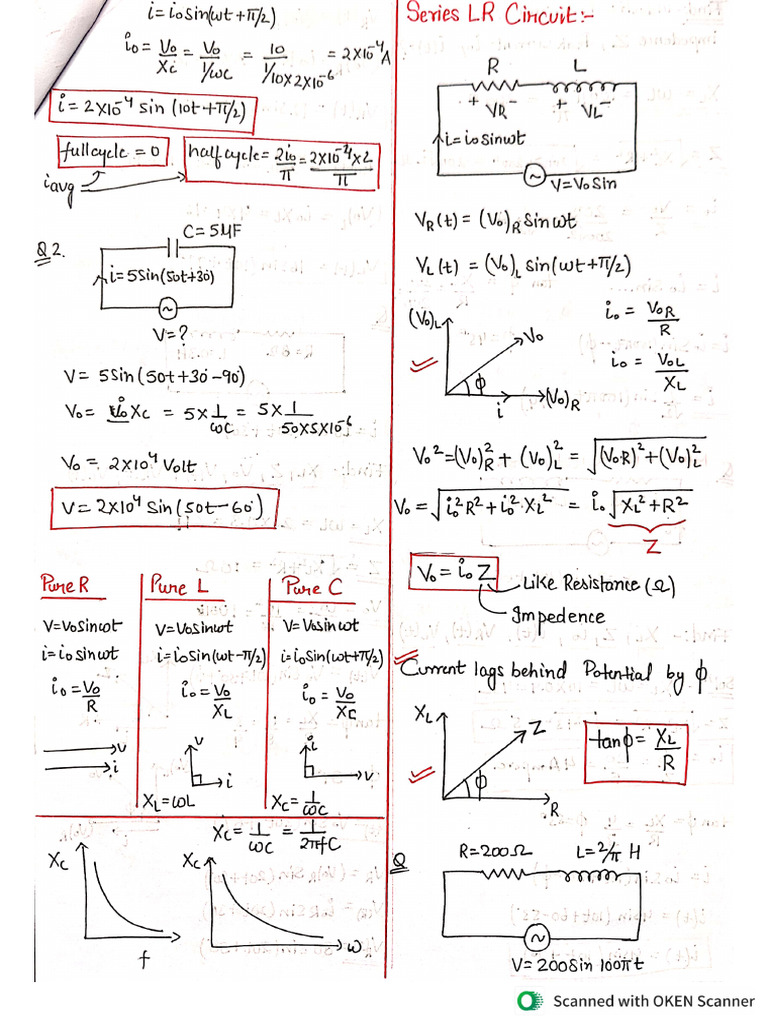 i = i₀ sin(ωt + π/2)
i₀ = V₀/Xc = V₀/(1/ωC) = 10/(1/10×2×10⁻⁶) i = 2×10⁻⁴A
i = 2×10⁻⁴ sin (10t + π/2)
full cycle = 0
half cycle = 2i₀/π = 2×10⁻⁴×2/π
iavg
Q2.
C = 5μF
i = 5Sin(50t+30)
V = ?
V = 5Sin(50t+30-90)
V₀ = i₀ Xc = 5×1/ωC = 5×1/50×5×10⁻⁶
V₀ = 2×10⁴ Volt
V = 2×10⁴ Sin(50t-60)
Pure R
V=V₀sinωt
i=i₀sinωt
i₀=V₀/R
V
i
Pure L
V=V₀sinωt
i=i₀Sin(ωt-π/2)
i₀=V₀/XL
V
i
XL=ωL
Pure C
V=V₀sinωt
i=i₀Sin(ωt+π/2)
i₀=V₀/Xc
i
V
Xc=1/ωC
Xc = 1/ωC = 1/2πfC
Xc
f
Xc
ω
Series LR Circuit:-
R L
+ VR - + VL -
i=i₀sinωt
V=V₀Sin
VR(t) = (V₀)R Sinωt
VL(t) = (V₀)L sin(ωt+π/2)
(V₀)L
V₀
φ
i
(V₀)R
i₀ = V₀R/R
i₀ = V₀L/XL
V₀² = (V₀)²R + (V₀)²L = √(V₀R)² + (V₀)²L
V₀ = √i₀²R² + i₀²·XL² = i₀√XL²+R²
Z
V₀ = i₀ Z
Like Resistance (Ω)
Impedence
Current lags behind Potential by φ
XL
Z
φ
R
tanφ = XL/R
Q
R=200Ω L=2/π H
V=200Sin 100πt
Scanned with OKEN Scanner